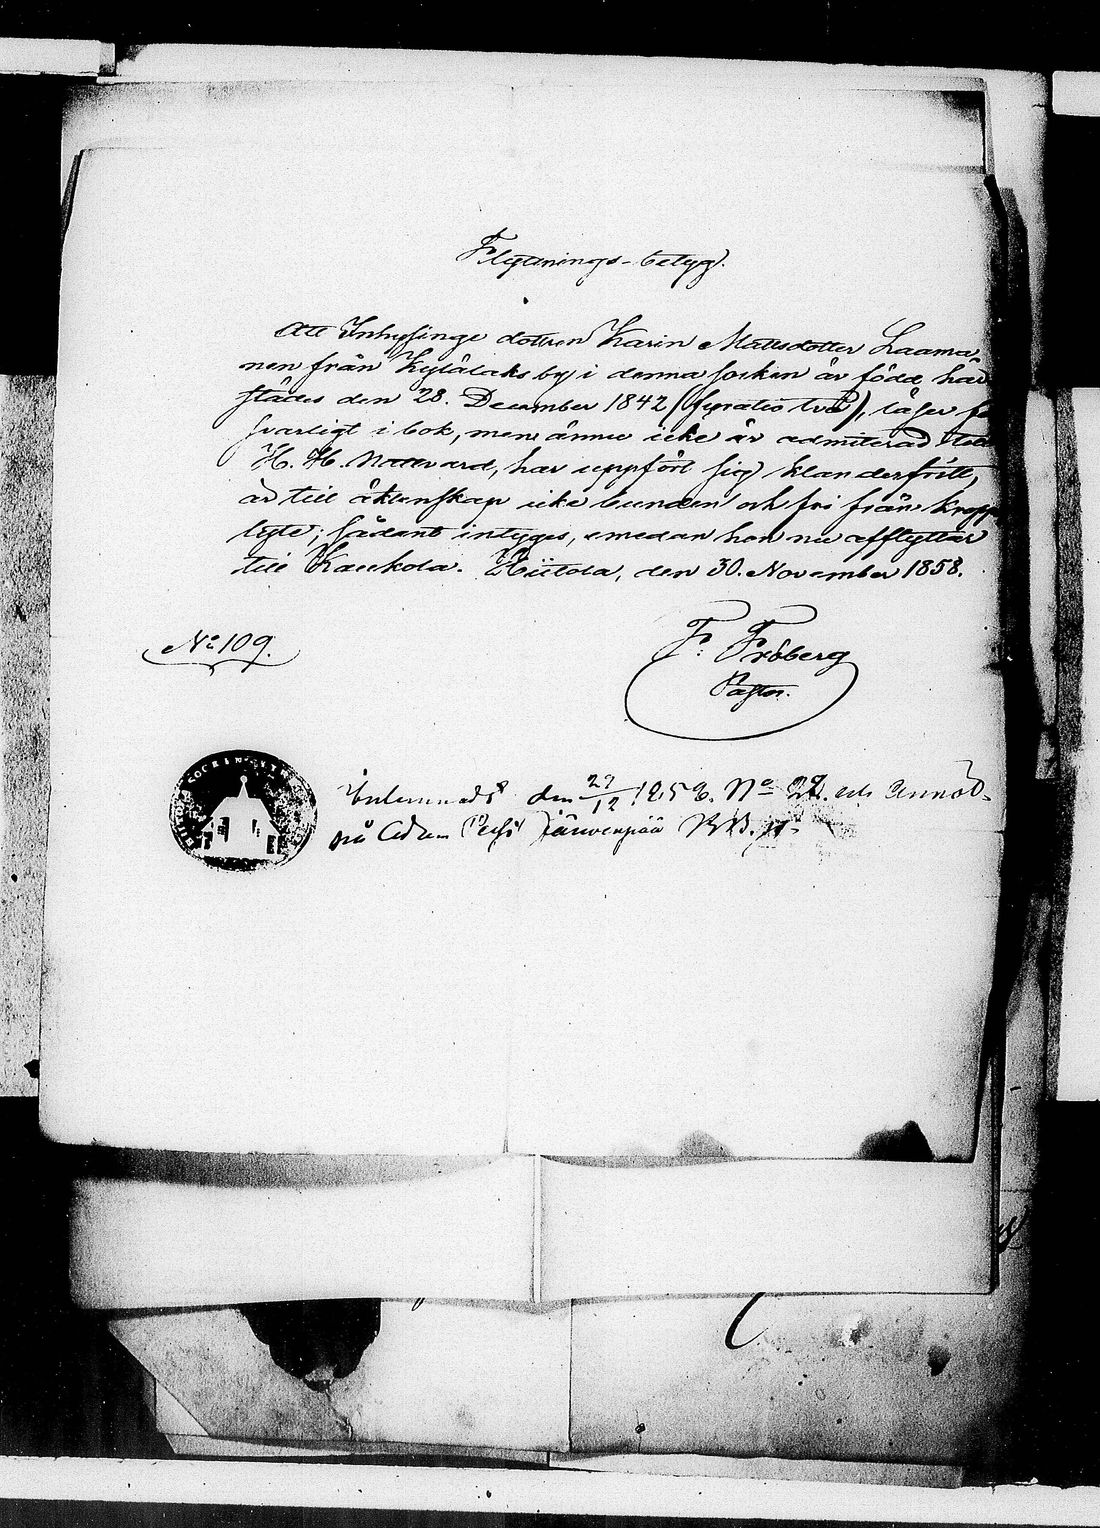 Flyttnings-betyg.
Att Inhysinge dottren Karin Mattsdotter Laama-
nen från Kylälaks by i denna socken är född här
städes den 28. December 1842 (fyratio två), läser för
svarligt i bok, men ännu icke är admitterad till
H. H. Nattvard, har uppfört sig klanderfritt,
är till äktenskap icke bunden och fri från kropps
lyte; sådant intygas, emedan hon nu afflyttar
till Kaukola. Hiitola, den 30. November 1858.
No 109.
F. Fröberg
Pastor.
Inlemnadt den 27/12 1858. No 22. och Annot-
på Adam Järvenpää